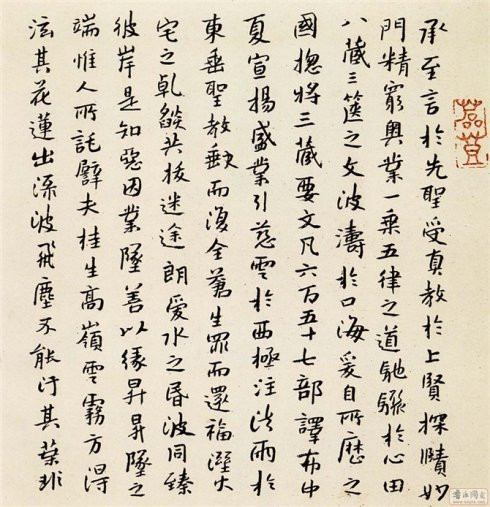 承至言於先聖受真教於上賢探賾妙
門精窮奧業一乘五律之道馳驟於心田
八藏三篋之文波濤於口海爰自所歷之
國揔將三藏要文凡六百五十七部譯布中
夏宣揚盛業引慈雲於西極注法雨於
東垂聖教缺而復全蒼生罪而還福溼火
宅之乾燄共拔迷途朗愛水之昏波同臻
彼岸是知惡因業墜善以緣昇昇墜之
端惟人所託譬夫桂生高嶺雲霧方得
泫其花蓮出淥波飛塵不能汙其葉非